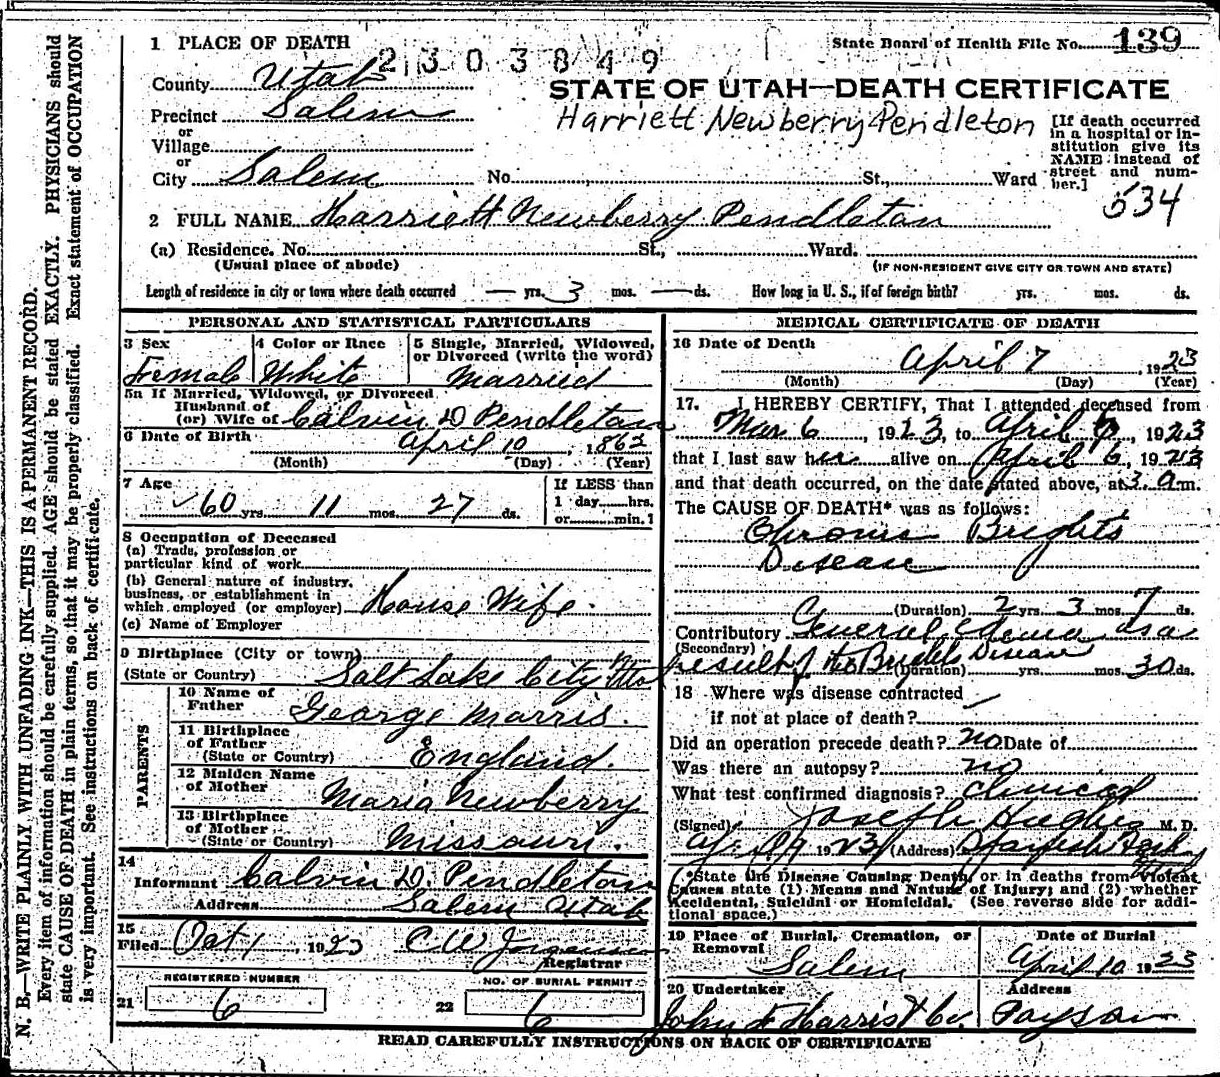 1 PLACE OF DEATH
2303849
State Board of Health File No. 139
County Utah
STATE OF UTAH—DEATH CERTIFICATE
Precinct Salem
Harriett Newberry Pendleton
or
Village
or
City Salem No. St., Ward
[If death occurred
in a hospital or in-
stitution give its
NAME instead of
street and num-
ber.]
534
2 FULL NAME Harriett Newberry Pendleton
(a) Residence. No. St., Ward.
(Usual place of abode)
(IF NON-RESIDENT GIVE CITY OR TOWN AND STATE)
Length of residence in city or town where death occurred — yrs. 3 mos. — ds. How long in U. S., if of foreign birth? yrs. mos. ds.
PERSONAL AND STATISTICAL PARTICULARS
3 Sex
Female
4 Color or Race
White
5 Single, Married, Widowed,
or Divorced (write the word)
Married
5a If Married, Widowed, or Divorced
Husband of
(or) Wife of Calvin D Pendleton
6 Date of Birth April 10, 1862
(Month) (Day) (Year)
7 Age
60 yrs. 11 mos. 27 ds.
If LESS than
1 day hrs.
or min.
8 Occupation of Deceased
(a) Trade, profession or
particular kind of work
(b) General nature of industry,
business, or establishment in
which employed (or employer) House Wife.
(c) Name of Employer
9 Birthplace (City or town)
(State or Country) Salt Lake City Utah
PARENTS
10 Name of
Father George Morris.
11 Birthplace
of Father
(State or Country) England.
12 Maiden Name
of Mother Maria Newberry
13 Birthplace
of Mother
(State or Country) Missouri.
14
Informant Calvin D. Pendleton
Address Salem Utah
15
Filed Oct 1, 1923 C W
Registrar
REGISTERED NUMBER
21 6
NO. OF BURIAL PERMIT
22 6
MEDICAL CERTIFICATE OF DEATH
16 Date of Death
April 7, 1923
(Month) (Day) (Year)
17. I HEREBY CERTIFY, That I attended deceased from
Mar 6, 1923, to April, 1923
that I last saw her alive on April 6, 1923
and that death occurred, on the date stated above, at 3 a.m.
The CAUSE OF DEATH* was as follows:
Chronic Brights
Disease
(Duration) 2 yrs. 3 mos. 7 ds.
Contributory General Edema as a
(Secondary)
result of the Brights Disease
(Duration) yrs. mos. 30 ds.
18 Where was disease contracted
if not at place of death?
Did an operation precede death? no Date of
Was there an autopsy? no
What test confirmed diagnosis? Clinical
(Signed) Joseph Hughes M. D.
April 9 1923 (Address) Spanish Fork
*State the Disease Causing Death, or in deaths from Violent
Causes state (1) Means and Nature of Injury; and (2) whether
Accidental, Suicidal or Homicidal. (See reverse side for addi-
tional space.)
19 Place of Burial, Cremation, or
Removal
Salem
Date of Burial
April 10 1923
20 Undertaker
John F Harrist Co.
Address
Payson
READ CAREFULLY INSTRUCTIONS ON BACK OF CERTIFICATE
N. B.—WRITE PLAINLY WITH UNFADING INK—THIS IS A PERMANENT RECORD.
Every item of information should be carefully supplied. AGE should be stated EXACTLY. PHYSICIANS should
state CAUSE OF DEATH in plain terms, so that it may be properly classified. Exact statement of OCCUPATION
is very important. See instructions on back of certificate.